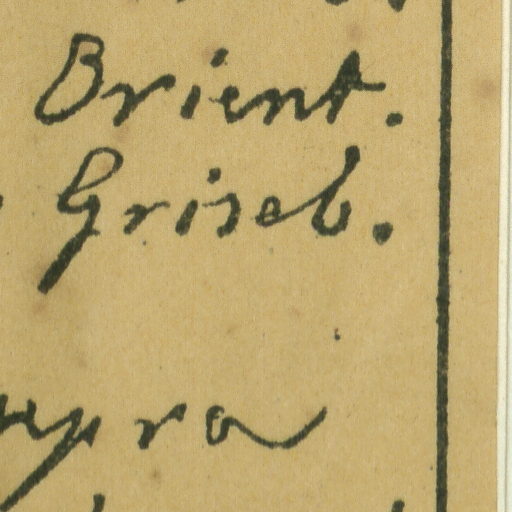 Orient.
Griseb.
supra